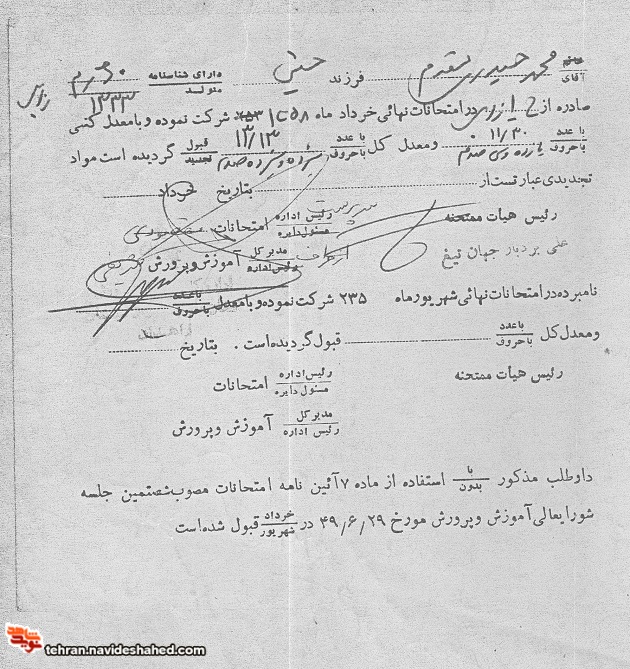 خانم / آقای محمد حیدری مقدم فرزند حسن دارای شناسنامه / متولد ۱۳۳۳
صادره از در امتحانات نهائی خرداد ماه ۱۳۵۸ شرکت نموده و با معدل کتبی
با عدد / با حروف ۱۱/۳۰ یازده و سی صدم و معدل کل با عدد / با حروف ۱۳/۱۳ سیزده و سیزده صدم قبول / تجدید گردیده است مواد
تجدیدی عبارتست از بتاریخ خرداد
رئیس هیأت ممتحنه رئیس اداره / مسئول دایره امتحانات سرپرست
علی بردبار جهان تیغ مدیر کل / رئیس اداره آموزش و پرورش از طرف
نامبرده در امتحانات نهائی شهریور ماه ۲۳۵ شرکت نموده و با معدل با عدد / با حروف
و معدل کل با عدد / با حروف قبول گردیده است . بتاریخ
رئیس هیأت ممتحنه رئیس اداره / مسئول دایره امتحانات
مدیر کل / رئیس اداره آموزش و پرورش
داوطلب مذکور با / بدون استفاده از ماده ۷ آئین نامه امتحانات مصوب شصتمین جلسه
شورایعالی آموزش و پرورش مورخ ۴۹/۶/۲۹ در خرداد / شهریور قبول شده است
نوید شاهد
tehran.navideshahed.com